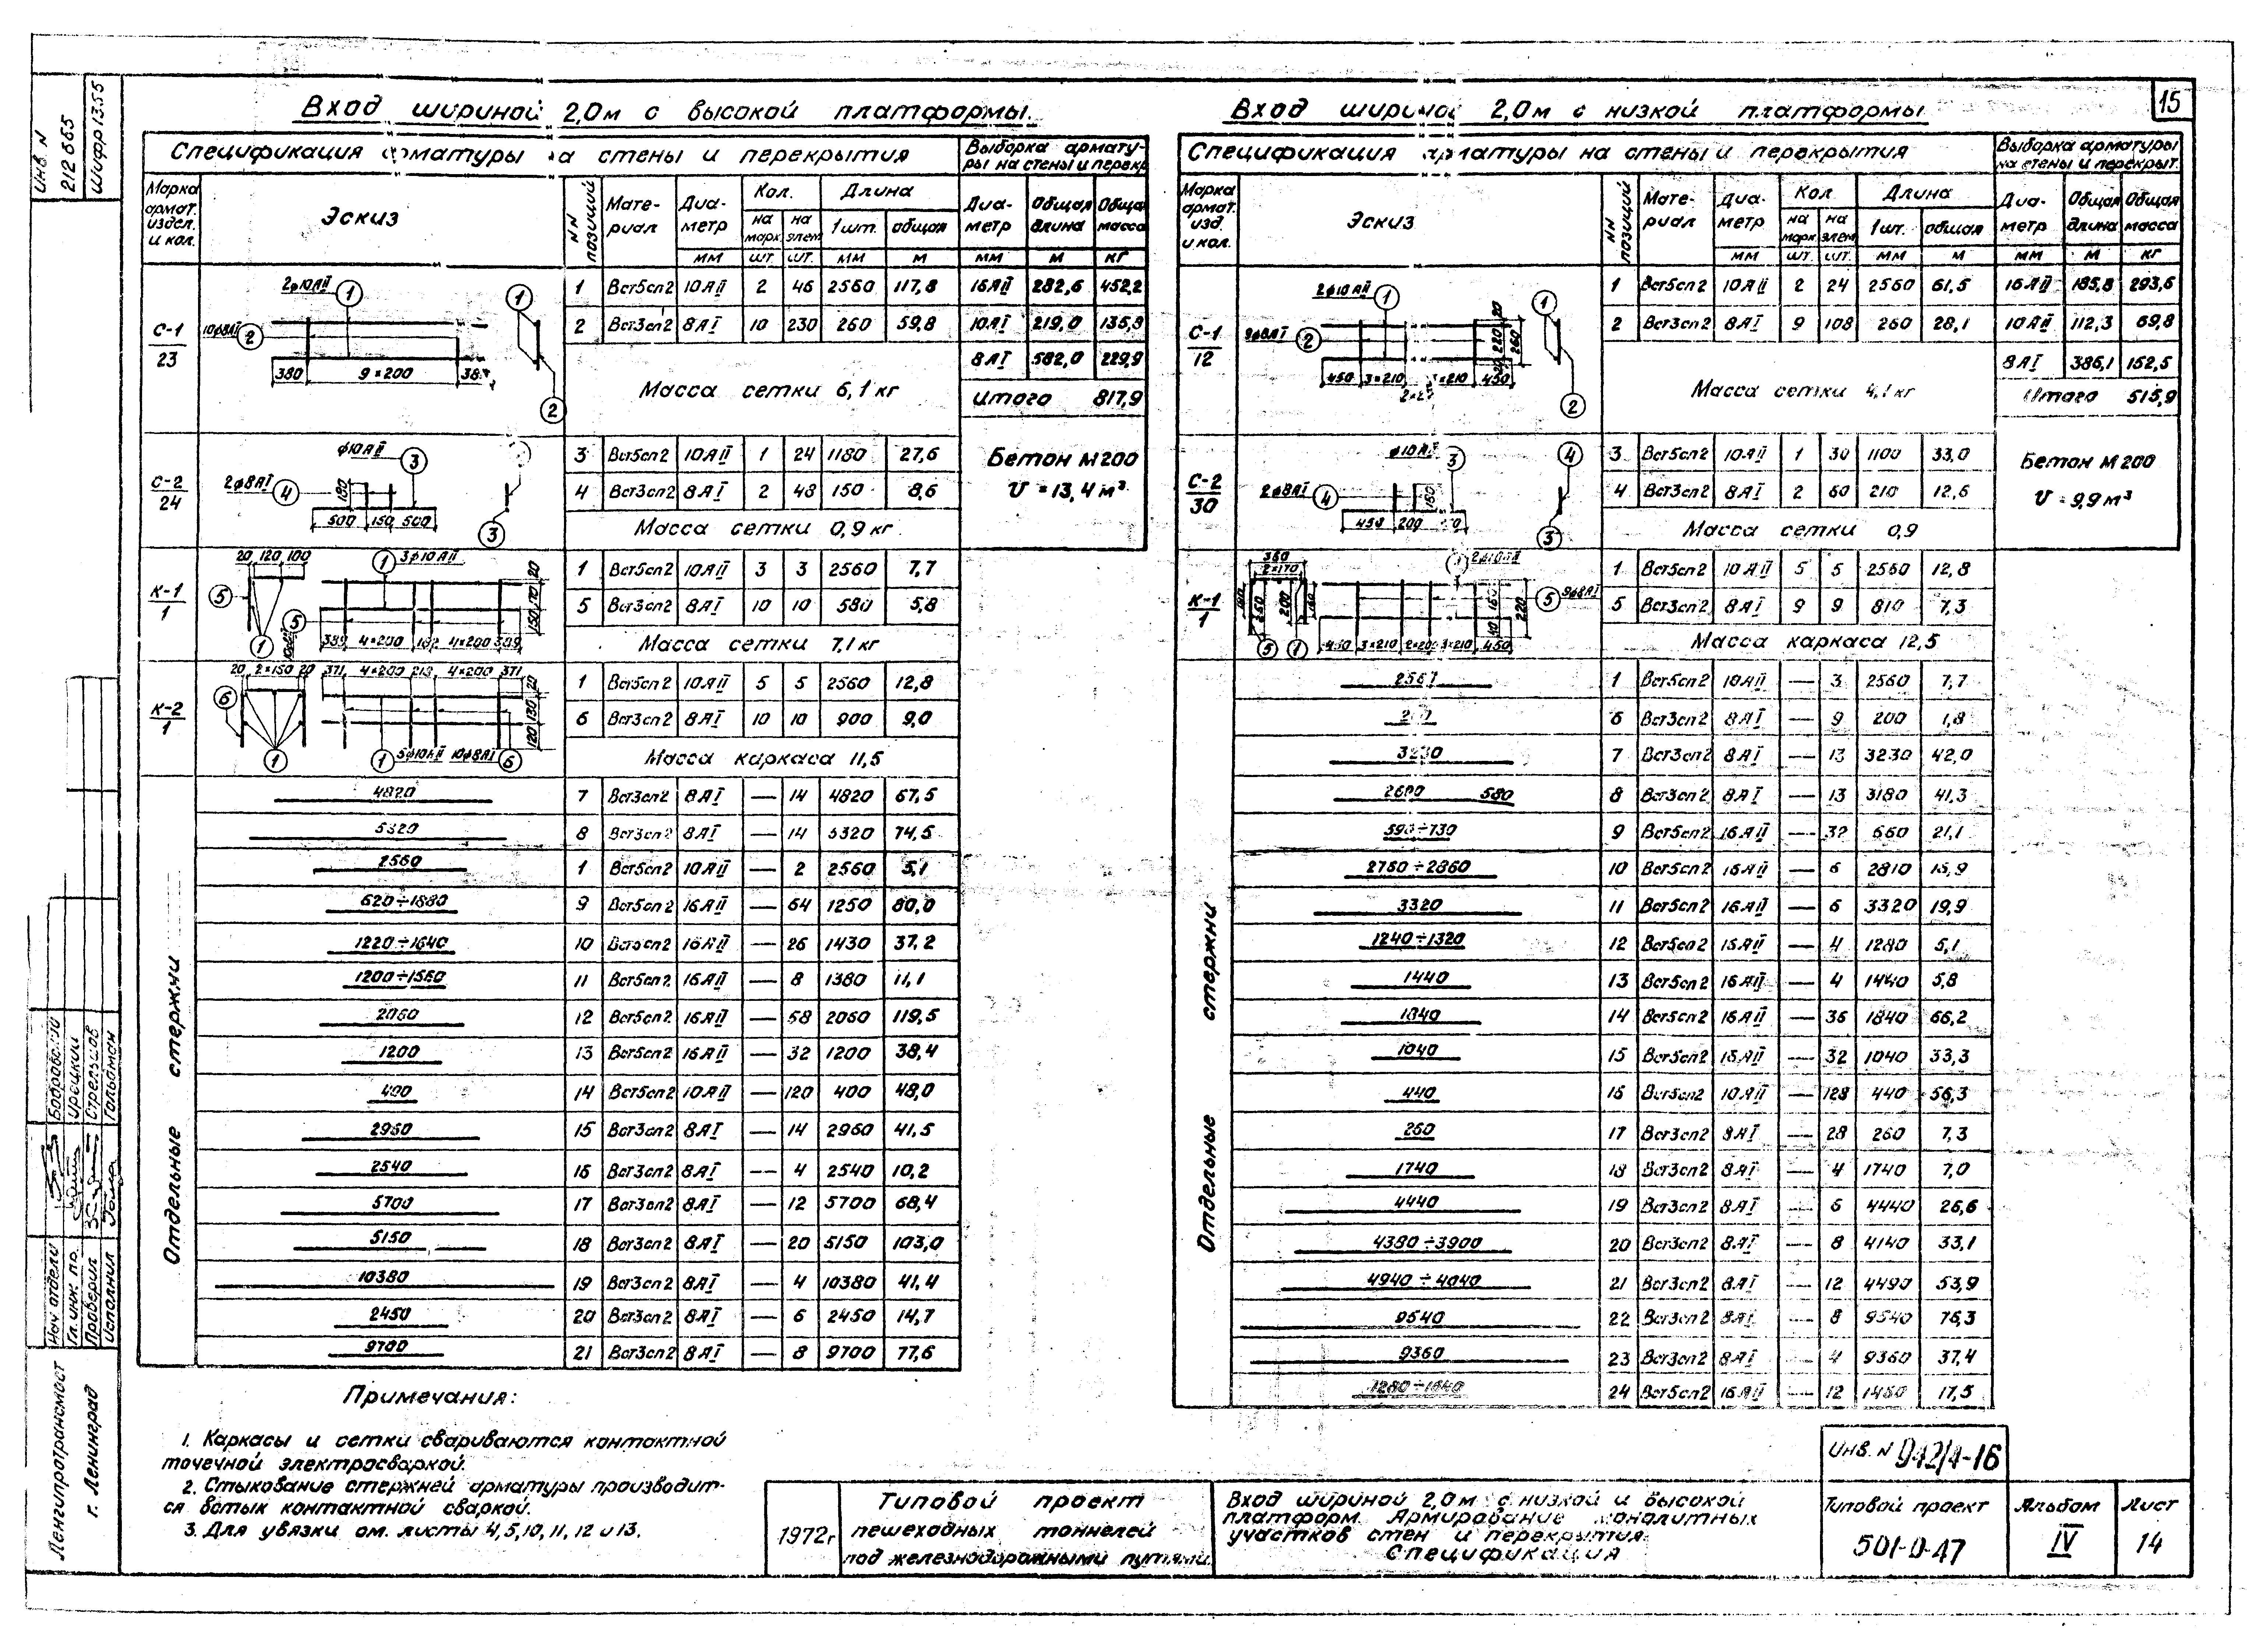 15
ИНВ. N
212665
Шифр 1355
Вход шириной 2,0м с высокой платформы.
Спецификация арматуры на стены и перекрытия
Выборка армату-
ры на стены и перекр
Марка армат. издел. и кол.
Эскиз
NN позиций
Мате-риал
Диа-метр
Кол.
Длина
на марк
на элем
1 шт.
общая
Диа-метр
Общая длина
Общая масса
мм шт. шт. мм м мм м кг
С-1/23
2ø10АII
10ø8АI
380 9×200
1 Вст5сп2 10АII 2 46 2560 117,8
16АII 282,6 452,2
2 Вст3сп2 8АI 10 230 260 59,8
219,0
8АI 582,0 229,9
Масса сетки 6,1 кг
Итого 817,9
С-2/24
ø10АII
2ø8АI
180
500 150 500
3 Вст5сп2 10АII 1 24 1180 27,6
4 Вст3сп2 8АI 2 48 150 8,6
Масса сетки 0,9 кг
Бетон М200
V = 13,4 м³
К-1/1
20 120 100
3ø10АII
150 170 20
4×200 4×200
1 Вст5сп2 10АII 3 3 2560 7,7
5 Вст3сп2 8АI 10 10 580 5,8
Масса сетки 7,1 кг
К-2/1
20 2×150 20
371 4×200 213 4×200 371
120 130 20
5ø10АII 10ø8АI
1 Вст5сп2 10АII 5 5 2560 12,8
6 Вст3сп2 8АI 10 10 900 9,0
Масса каркаса 11,5
Отдельные стержни
4820 7 Вст3сп2 8АI — 14 4820 67,5
5320 8 Вст3сп2 8АI — 14 5320 74,5
2560 1 Вст5сп2 10АII — 2 2560 5,1
620÷1880 9 Вст5сп2 16АII — 64 1250 80,0
1220÷1640 10 Вст5сп2 16АII — 26 1430 37,2
1200÷1560 11 Вст5сп2 16АII — 8 1380 11,1
2060 12 Вст5сп2 16АII — 58 2060 119,5
1200 13 Вст5сп2 16АII — 32 1200 38,4
400 14 Вст5сп2 10АII — 120 400 48,0
2960 15 Вст3сп2 8АI — 14 2960 41,5
2540 16 Вст3сп2 8АI — 4 2540 10,2
5700 17 Вст3сп2 8АI — 12 5700 68,4
5150 18 Вст3сп2 8АI — 20 5150 103,0
10380 19 Вст3сп2 8АI — 4 10380 41,4
2450 20 Вст3сп2 8АI — 6 2450 14,7
9700 21 Вст3сп2 8АI — 8 9700 77,6
Примечания:
1. Каркасы и сетки свариваются контактной
точечной электросваркой.
2. Стыкование стержней арматуры производит-
ся встык контактной сваркой.
3. Для увязки см. листы 4,5,10,11,12 и 13.
Вход шириной 2,0м с низкой платформы
Спецификация арматуры на стены и перекрытия
Выборка арматуры
на стены и перекрыт.
Марка армат. изд. и кол.
Эскиз
NN позиций
Мате-риал
Диа-метр
Кол.
Длина
на марк
на элем
1 шт.
общая
Диа-метр
Общая длина
Общая масса
мм шт. шт. мм м мм м кг
С-1/12
2ø10АII
9ø8АI
20 220 20 260
450 3×210 3×210 450
1 Вст5сп2 10АII 2 24 2560 61,5
16АII 185,8 293,6
2 Вст3сп2 8АI 9 108 260 28,1
10АII 112,3 69,8
8АI 386,1 152,5
Масса сетки 4,1 кг
Итого 515,9
С-2/30
ø10АII
2ø8АI
450 200
3 Вст5сп2 10АII 1 30 1100 33,0
4 Вст3сп2 8АI 2 60 210 12,6
Масса сетки 0,9
Бетон М200
V = 9,9 м³
К-1/1
2×170
2ø10АII
9ø8АI
220
450 3×210 2×200 3×210 450
1 Вст5сп2 10АII 5 5 2560 12,8
5 Вст3сп2 8АI 9 9 810 7,3
Масса каркаса 12,5
Отдельные стержни
1 Вст5сп2 10АII — 3 2560 7,7
6 Вст3сп2 8АI — 9 200 1,8
3230 7 Вст3сп2 8АI — 13 3230 42,0
2600 580 8 Вст3сп2 8АI — 13 3180 41,3
590÷730 9 Вст5сп2 16АII — 32 660 21,1
2760÷2860 10 Вст5сп2 16АII — 6 2810 16,9
3320 11 Вст5сп2 16АII — 6 3320 19,9
1240÷1320 12 Вст5сп2 16АII — 4 1280 5,1
1440 13 Вст5сп2 16АII — 4 1440 5,8
1840 14 Вст5сп2 16АII — 36 1840 66,2
1040 15 Вст5сп2 16АII — 32 1040 33,3
440 16 Вст5сп2 10АII — 128 440 56,3
260 17 Вст3сп2 8АI — 28 260 7,3
1740 18 Вст3сп2 8АI — 4 1740 7,0
4440 19 Вст3сп2 8АI — 6 4440 26,6
4380÷3900 20 Вст3сп2 8АI — 8 4140 33,1
4940÷4040 21 Вст3сп2 8АI — 12 4490 53,9
9540 22 Вст3сп2 8АI — 8 9540 76,3
9360 23 Вст3сп2 8АI — 4 9360 37,4
1280÷1640 24 Вст5сп2 16АII — 12 1460 17,5
Инв. N 942/4-16
1972г
Типовой проект
пешеходных тоннелей
под железнодорожными путями
Вход шириной 2,0м с низкой и высокой
платформ. Армирование монолитных
участков стен и перекрытия.
Спецификация
Типовой проект
501-0-47
Альбом
IV
Лист
14
Ленгипротрансмост
г. Ленинград
Нач отдела
Гл. инж. пр. Урецкий
Проверил Стрельцов
Исполнил Гольдман